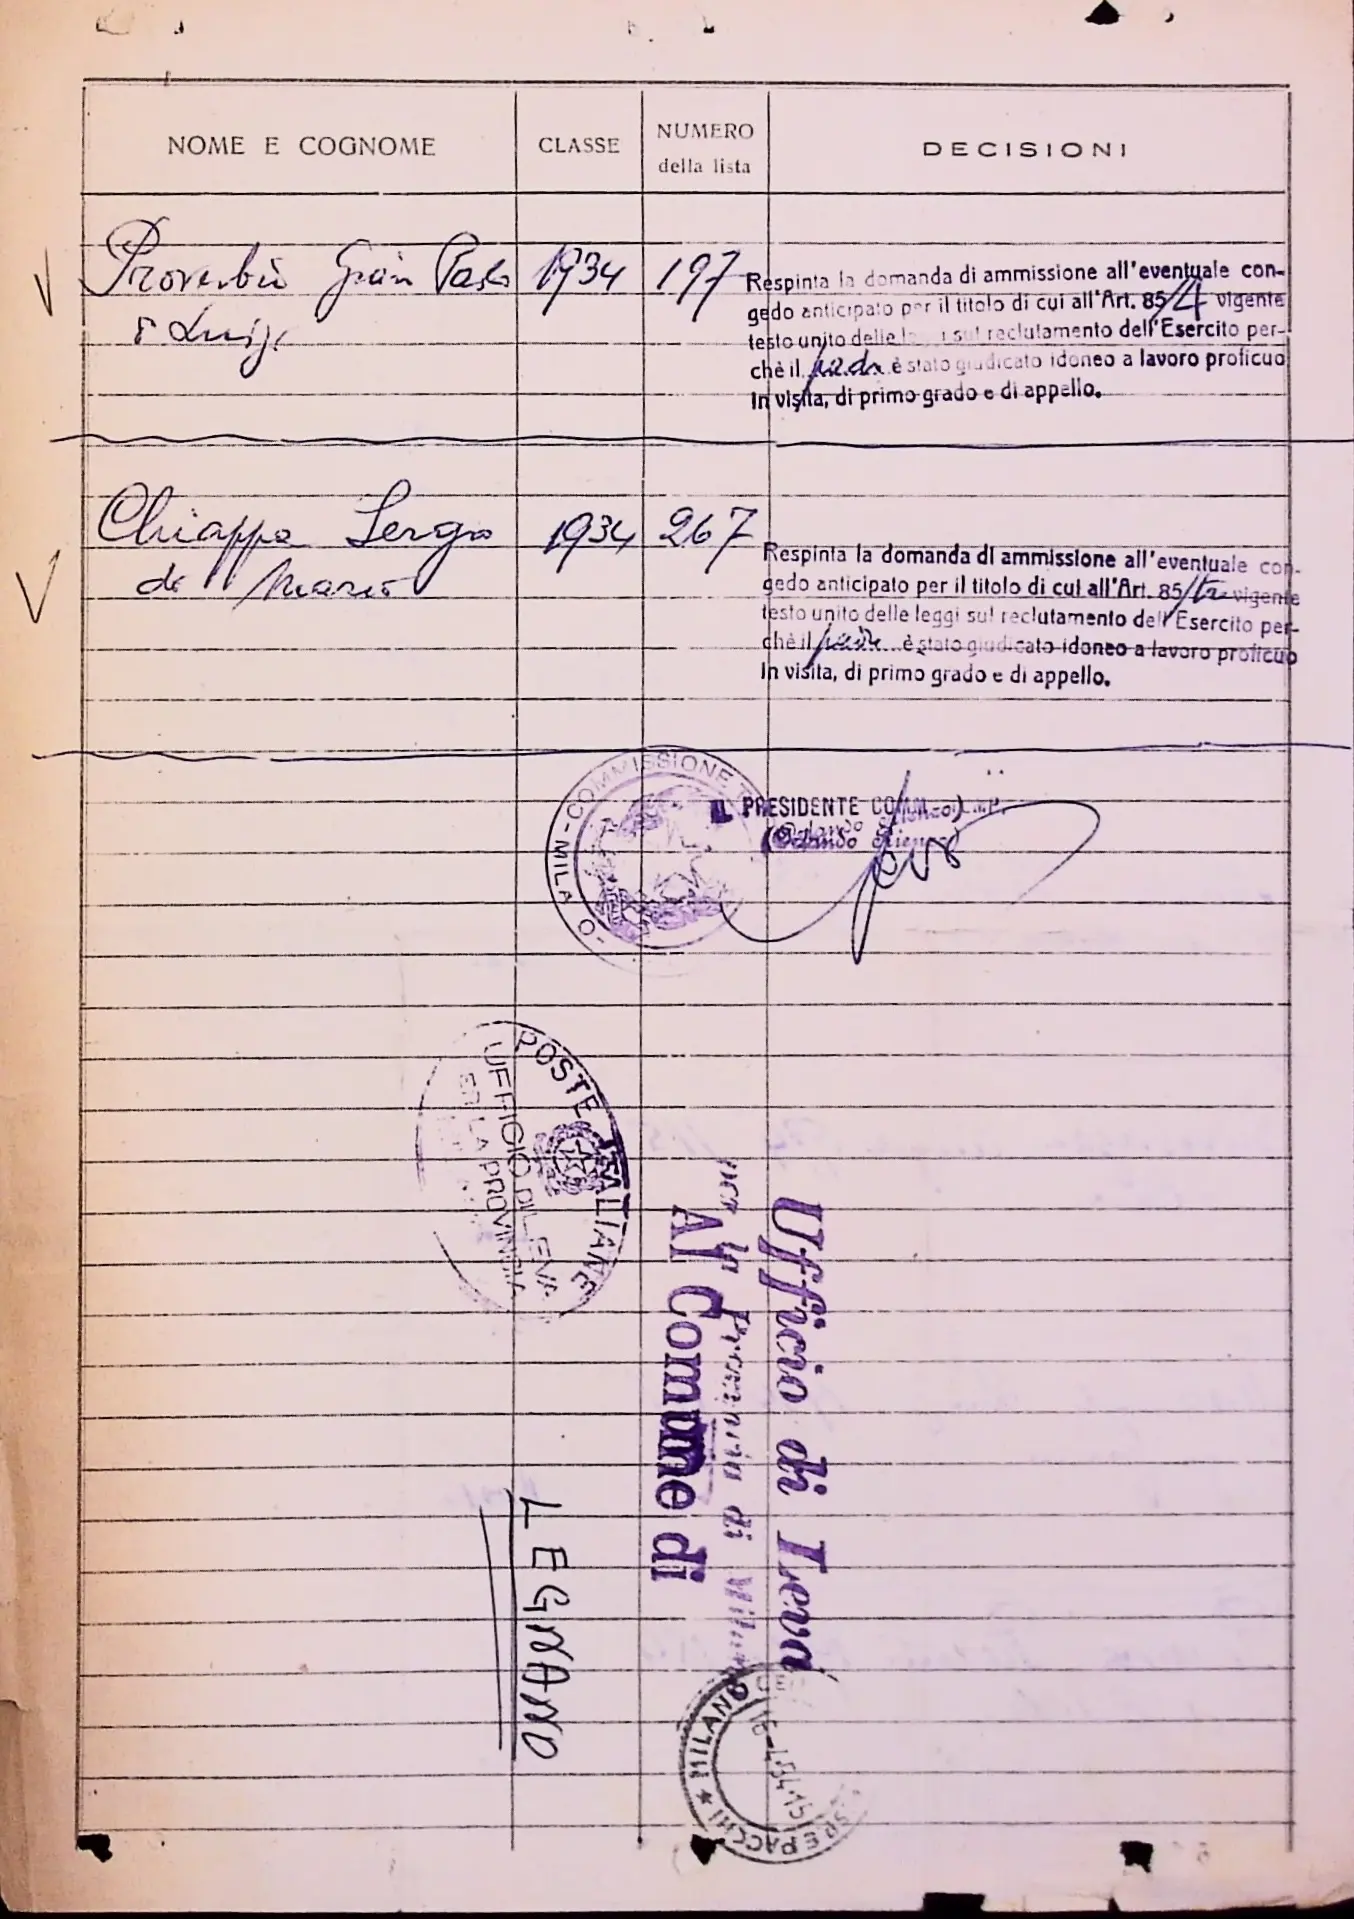 NOME E COGNOME
CLASSE
NUMERO
della lista
DECISIONI
Proverbio Gian Paolo 1934 197
Luigi
Respinta la domanda di ammissione all'eventuale con-
gedo anticipato per il titolo di cui all'Art. 85/4 vigente
testo unito delle sul reclutamento dell'Esercito per-
chè il padre è stato giudicato idoneo a lavoro proficuo
in visita, di primo grado e di appello.
Chiappa Sergio 1934 267
di Mario
Respinta la domanda di ammissione all'eventuale con-
gedo anticipato per il titolo di cui all'Art. 85/ vigente
testo unito delle leggi sul reclutamento dell'Esercito per-
chè il padre è stato giudicato idoneo a lavoro proficuo
in visita, di primo grado e di appello.
COMMISSIONE
MILA O
IL PRESIDENTE
(Orlando
POSTE ITALIANE
UFFICIO DI LEVA
PER LA PROVINCIA
Ufficio di Leva
per la Provincia di Milano
Al Comune di
LEGNANO
MILANO
PACCHI